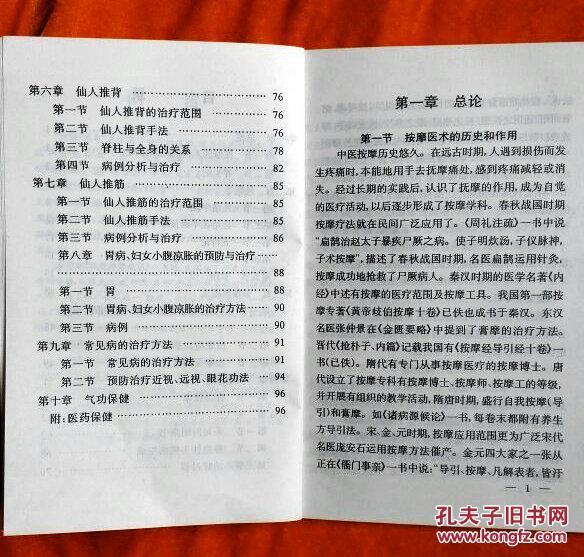 第六章 仙人推背 …………………… 76
第一节 仙人推背的治疗范围 …………… 76
第二节 仙人推背手法 …………………… 76
第三节 脊柱与全身的关系 ……………… 78
第四节 病例分析与治疗 ………………… 82
第七章 仙人推筋 …………………… 85
第一节 仙人推筋的治疗范围 …………… 85
第二节 仙人推筋手法 …………………… 85
第三节 病例分析与治疗 ………………… 86
第八章 胃病、妇女小腹凉胀的预防与治疗 ……
…………………………………… 88
第一节 胃 ……………………………… 88
第二节 胃病、妇女小腹凉胀的治疗方法 … 90
第三节 病例 …………………………… 90
第九章 常见病的治疗方法 …………… 91
第一节 常见病的治疗方法 ……………… 91
第二节 预防治疗近视、远视、眼花功法 …… 94
第十章 气功保健 …………………… 96
附:医药保健 ………………………… 96
第一章 总论
第一节 按摩医术的历史和作用
中医按摩历史悠久。在远古时期,人遇到损伤而发
生疼痛时,本能地用手去抚摩痛处,感到疼痛减轻或消
失。经过长期的实践后,认识了抚摩的作用,成为自觉
的医疗活动,以后逐步形成了按摩学科。春秋战国时期
按摩疗法就在民间广泛应用了。《周礼注疏》一书中说
“扁鹊治赵太子暴疾尸厥之病。使子明炊汤,子仪脉神,
子术按摩”,描述了春秋战国时期,名医扁鹊运用针灸、
按摩成功地抢救了尸厥病人。秦汉时期的医学名著《内
经》中述有按摩的医疗范围及按摩工具。我国第一部按
摩专著《黄帝歧伯按摩十卷》已佚也成书于秦汉。东汉
名医张仲景在《金匮要略》中提到了膏摩的治疗方法。
晋代《抢朴子、内篇》记载我国有《按摩经导引经十卷》一
书(已佚)。隋代有专门从事按摩医疗的按摩博士。唐
代设立了按摩专科有按摩博士、按摩师、按摩工的等级,
并开展有组织的教学活动,隋唐时期,盛行自我按摩(导
引)和膏摩。如《诸病源候论》一书,每卷末都附有养生
方导引法。宋、金、元时期,按摩应用范围更为广泛宋代
名医庞安石运用按摩方法催产。金元四大家之一张从
正在《儒门事亲》一书中说:“导引、按摩、凡解表者,皆汗
— 1 —
孔夫子旧书网